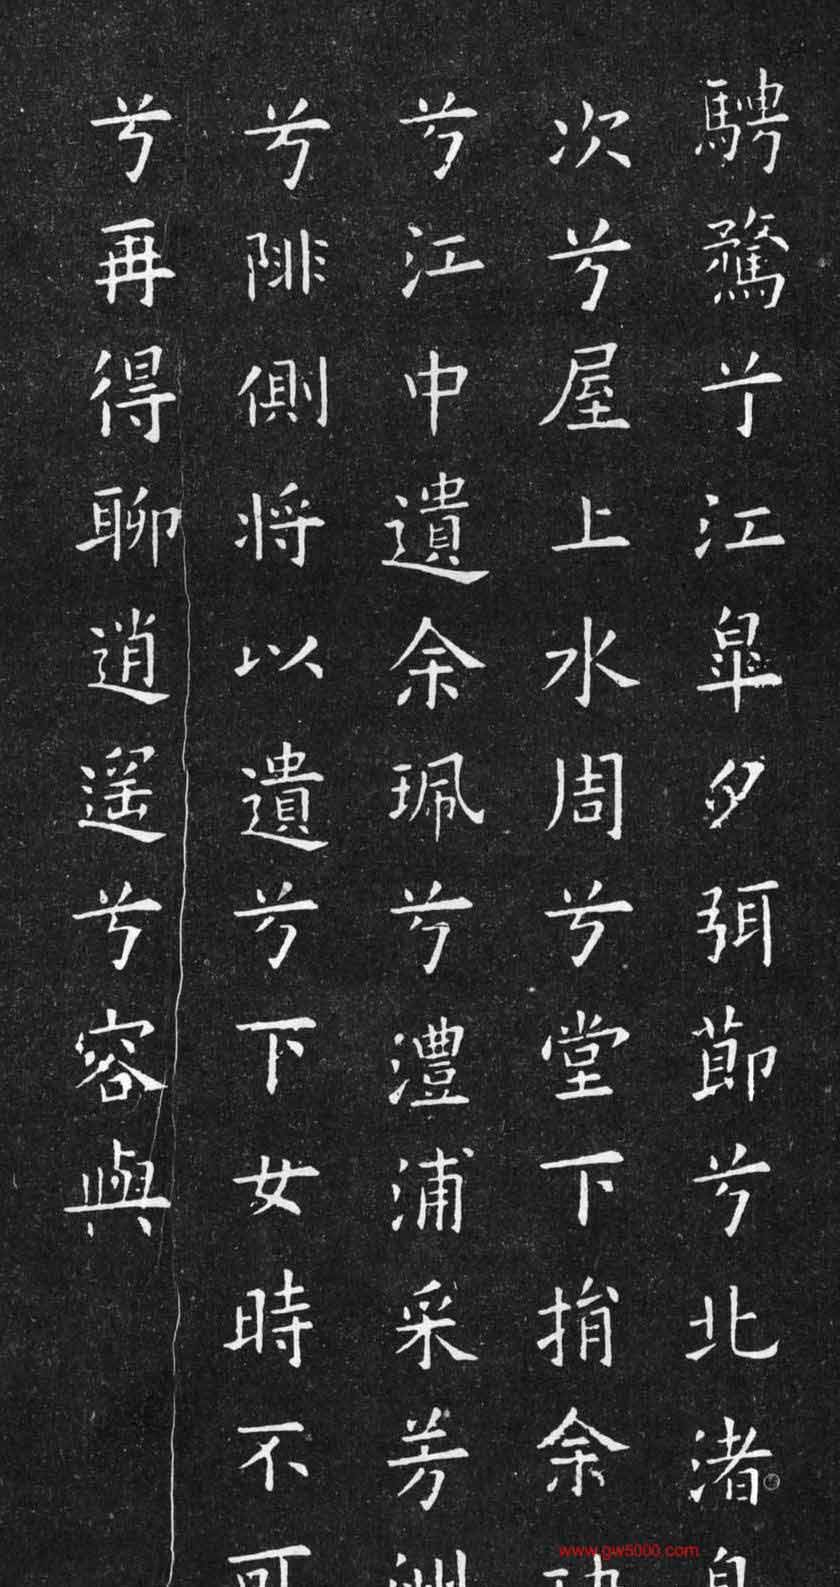 騁騖兮江皐夕弭節兮北渚
次兮屋上水周兮堂下捐余
兮江中遺余珮兮澧浦采芳洲
兮陫側将以遺兮下女時不可
兮再得聊逍遙兮容與
www.gw5000.com